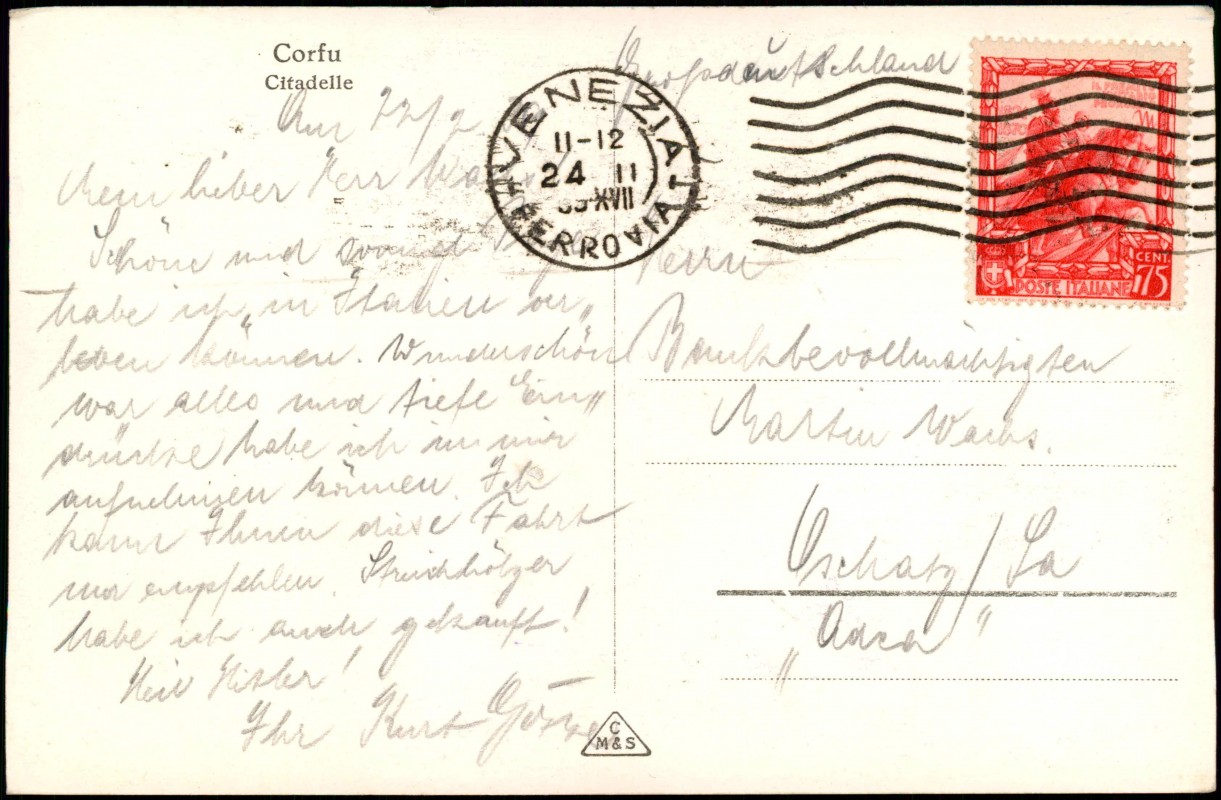 Corfu
Citadelle
Am 22/2
Mein lieber Herr
Schöne und Tage
habe ich in Italien ver„
leben können. Wunderschön
war alles und tiefe Ein„
drücke habe ich in mir
aufnehmen können. Ich
kann Ihnen diese Fahrt
nur empfehlen. Streichhölzer
habe ich auch gekauft!
Heil Hitler!
Ihr Kurt
C
M&S
Grossdeutschland
VENEZIA
11-12
24 II
39-XVII
FERROVIA
CENT.
75
POSTE ITALIANE
Herrn
Bankbevollmächtigten
Martin Wachs.
Oschatz/Sa
„Adca"